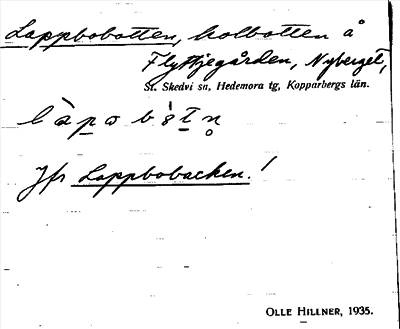 Lappbobotten, kolbotten å
Flyttjegården, Nyberget,
St. Skedvi sn, Hedemora tg, Kopparbergs län.
Jfr Lappbobacken!
OLLE HILLNER, 1935.